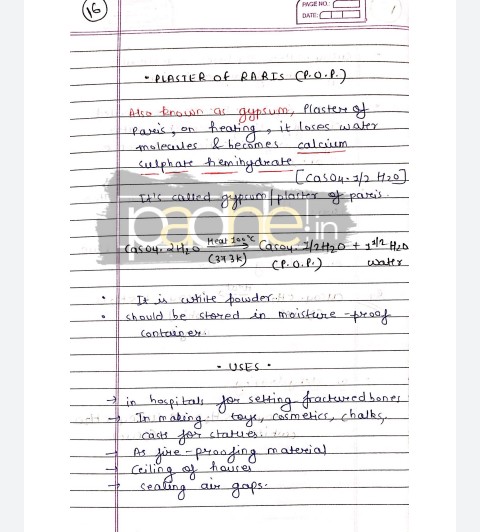 16
PAGE NO.:
DATE:
• PLASTER OF PARIS (P.O.P.)
Also known as gypsum, Plaster of
Paris, on heating, it loses water
molecules & becomes calcium
sulphate hemihydrate
[CaSO4. 1/2 H2O]
It's called gypsum/plaster of paris.
padhle.in
CaSO4. 2H2O Heat 100°C (373K) → CaSO4. 1/2H2O + 1 1/2 H2O
(P.O.P.) water
• It is white powder.
• should be stored in moisture-proof
container.
• USES •
→ in hospitals for setting fractured bones
→ In making toys, cosmetics, chalks,
casts for statues.
→ As fire-proofing material
→ Ceiling of houses
→ sealing air gaps.